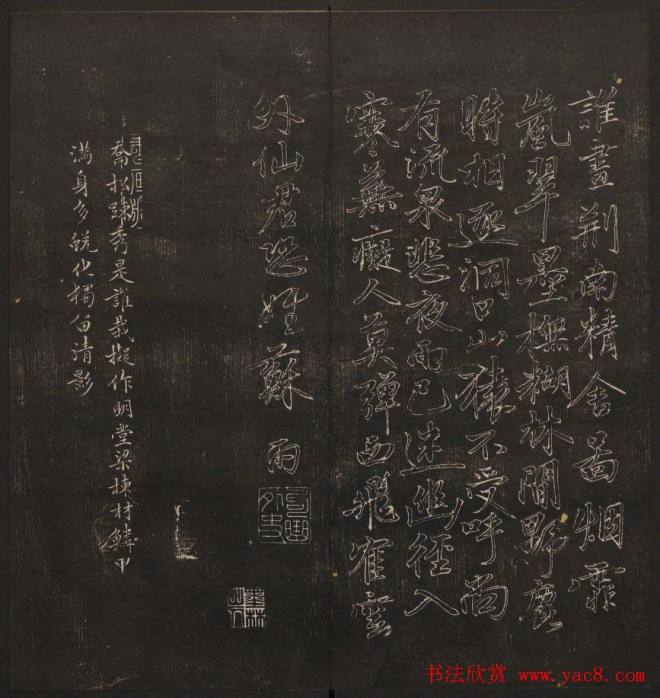 誰畫荆南精舍啚烟霏
嵐翠墨橅糊林間野鹿
時相逐洞口山猿不受呼尚
有流泉悲夜雨已迷幽徑入
寒蕪癡人莫彈西飛隺雲
外仙君恐姓蘇 雨
喬松踈秀是誰栽擬作明堂梁棟材鱗甲
滿身多蛻化獨留清影
书法欣赏 www.yac8.com